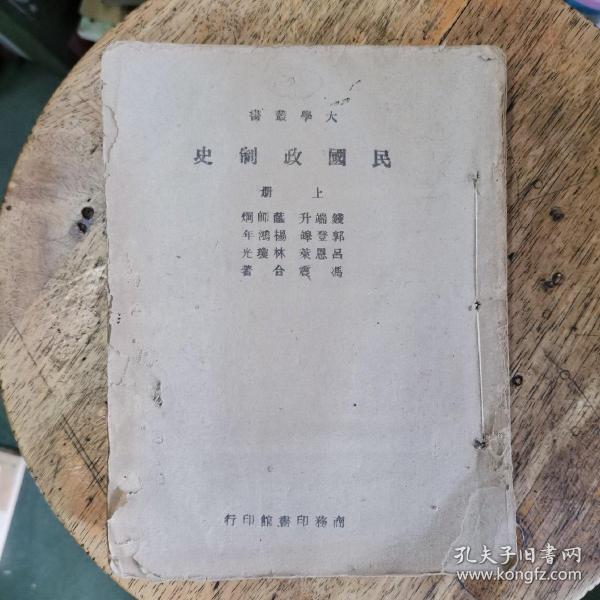 大學叢書
民國政制史
上册
錢端升 薩師炯
郭登皞 楊鴻年
呂恩萊 林瓊光
馮震 合著
商務印書館印行
孔夫子旧书网
www.kongfz.com